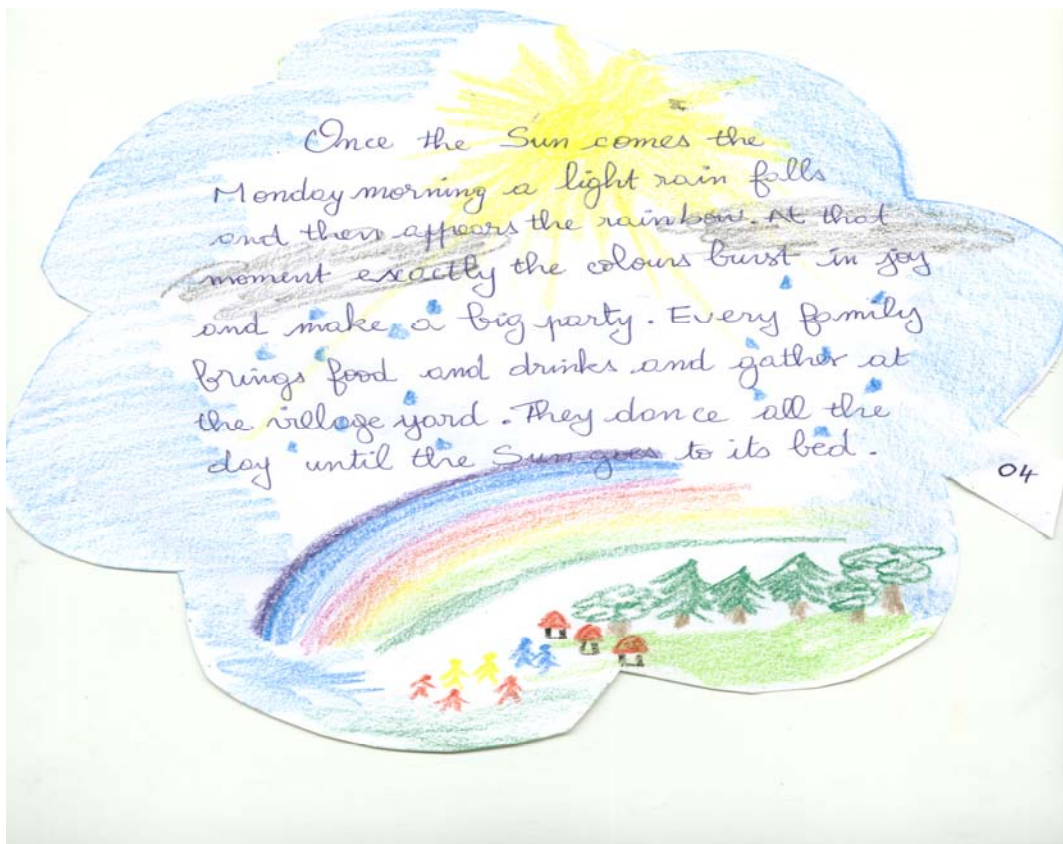 Once the Sun comes the
Monday morning a light rain falls
and then appears the rainbow. At that
moment exactly the colours burst in joy
and make a big party. Every family
brings food and drinks and gather at
the village yard. They dance all the
day until the Sun goes to its bed.
04